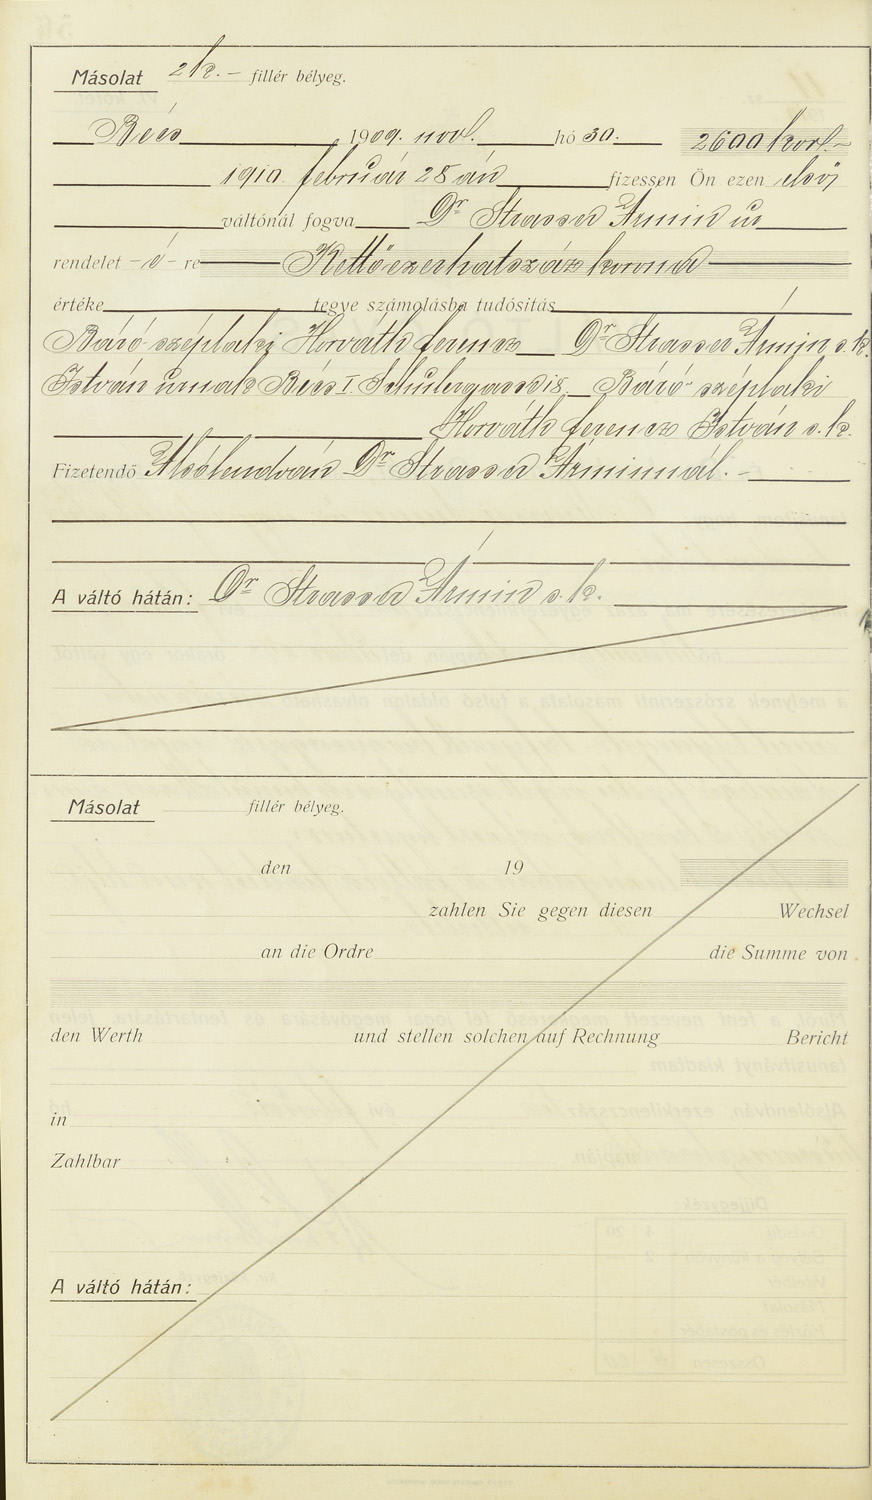 Másolat 2 k. – fillér bélyeg.
Bécs 1909. nov. hó 30. 2600 kor.–
1910. február 28 án fizessen Ön ezen első
váltónál fogva Dr Strasser Ármin úr
rendelet – é – re Kettőezerhatszáz korona
értéke tegye számolásba tudósitás
Báró széplaki Horváth ferencz Dr Strasser Ármin s. k.
István urnak Bécs I. 18. Báró széplaki
Horváth ferencz István s. k.
Fizetendő Alsólendván Dr Strasser Árminnál. –
A váltó hátán: Dr Strasser Ármin s. k.
Másolat fillér bélyeg.
den 19
zahlen Sie gegen diesen Wechsel
an die Ordre die Summe von
den Werth und stellen solchen auf Rechnung Bericht
in
Zahlbar
A váltó hátán: